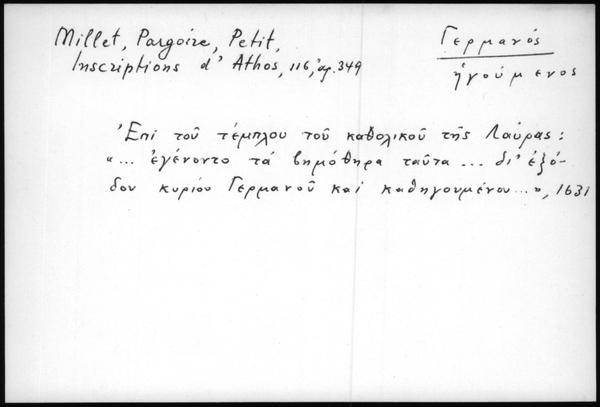 Millet, Pargoire, Petit,
Inscriptions d'Athos, 116, ἀρ. 349
Γερμανός
ἡγούμενος
Ἐπί τοῦ τέμπλου τοῦ καθολικοῦ τῆς Λαύρας:
"... ἐγένοντο τά βημόθηρα ταῦτα ... δι' ἐξό-
δου κυρίου Γερμανοῦ καί καθηγουμένου...", 1631